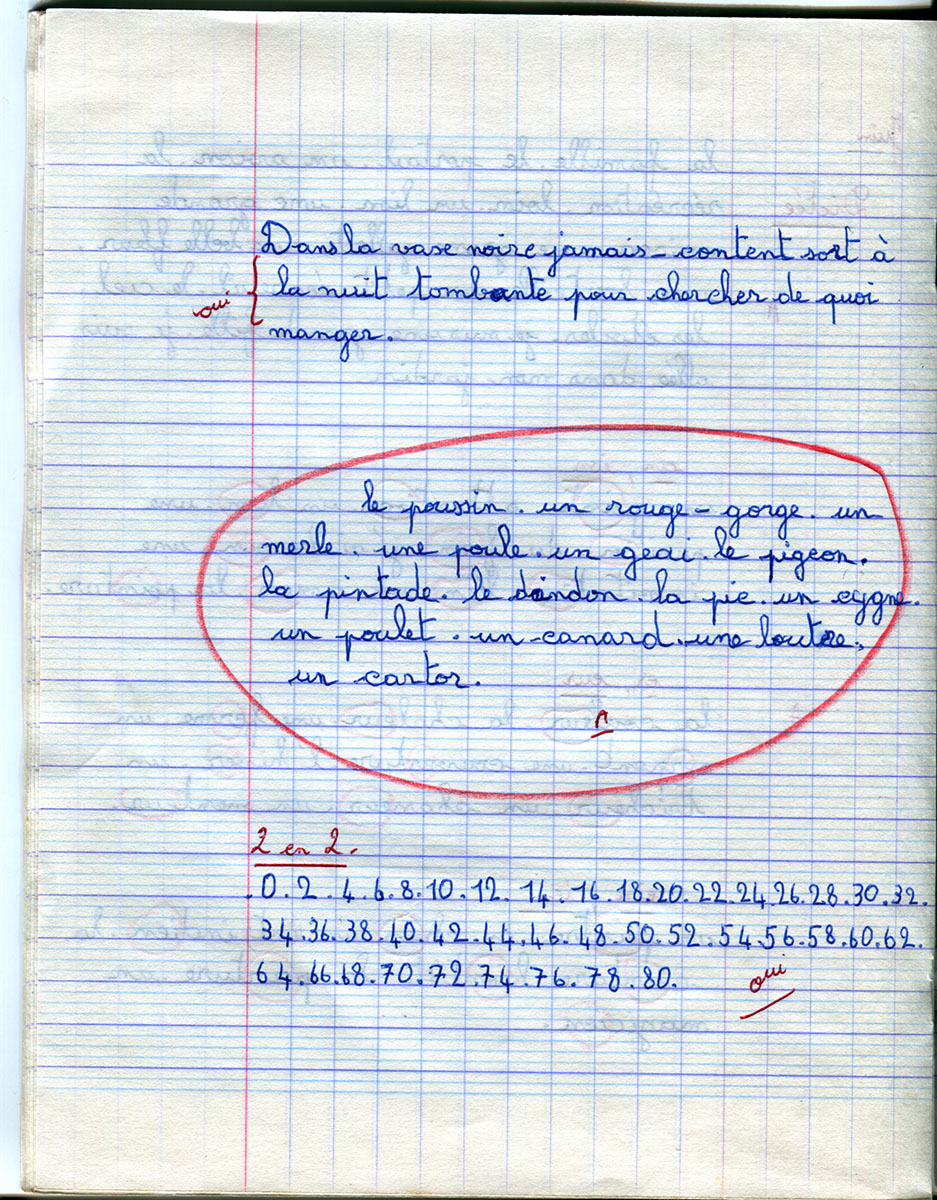 Dans la vase noire jamais-content sort à
oui
la nuit tombante pour chercher de quoi
manger.
le poussin. un rouge-gorge. un
merle. une poule. un geai. le pigeon.
la pintade. le dindon. la pie. un cygne.
un poulet. un canard. une loutre.
un castor.
2 en 2.
0.2.4.6.8.10.12.14.16.18.20.22.24.26.28.30.32.
34.36.38.40.42.44.46.48.50.52.54.56.58.60.62.
64.66.68.70.72.74.76.78.80.
oui